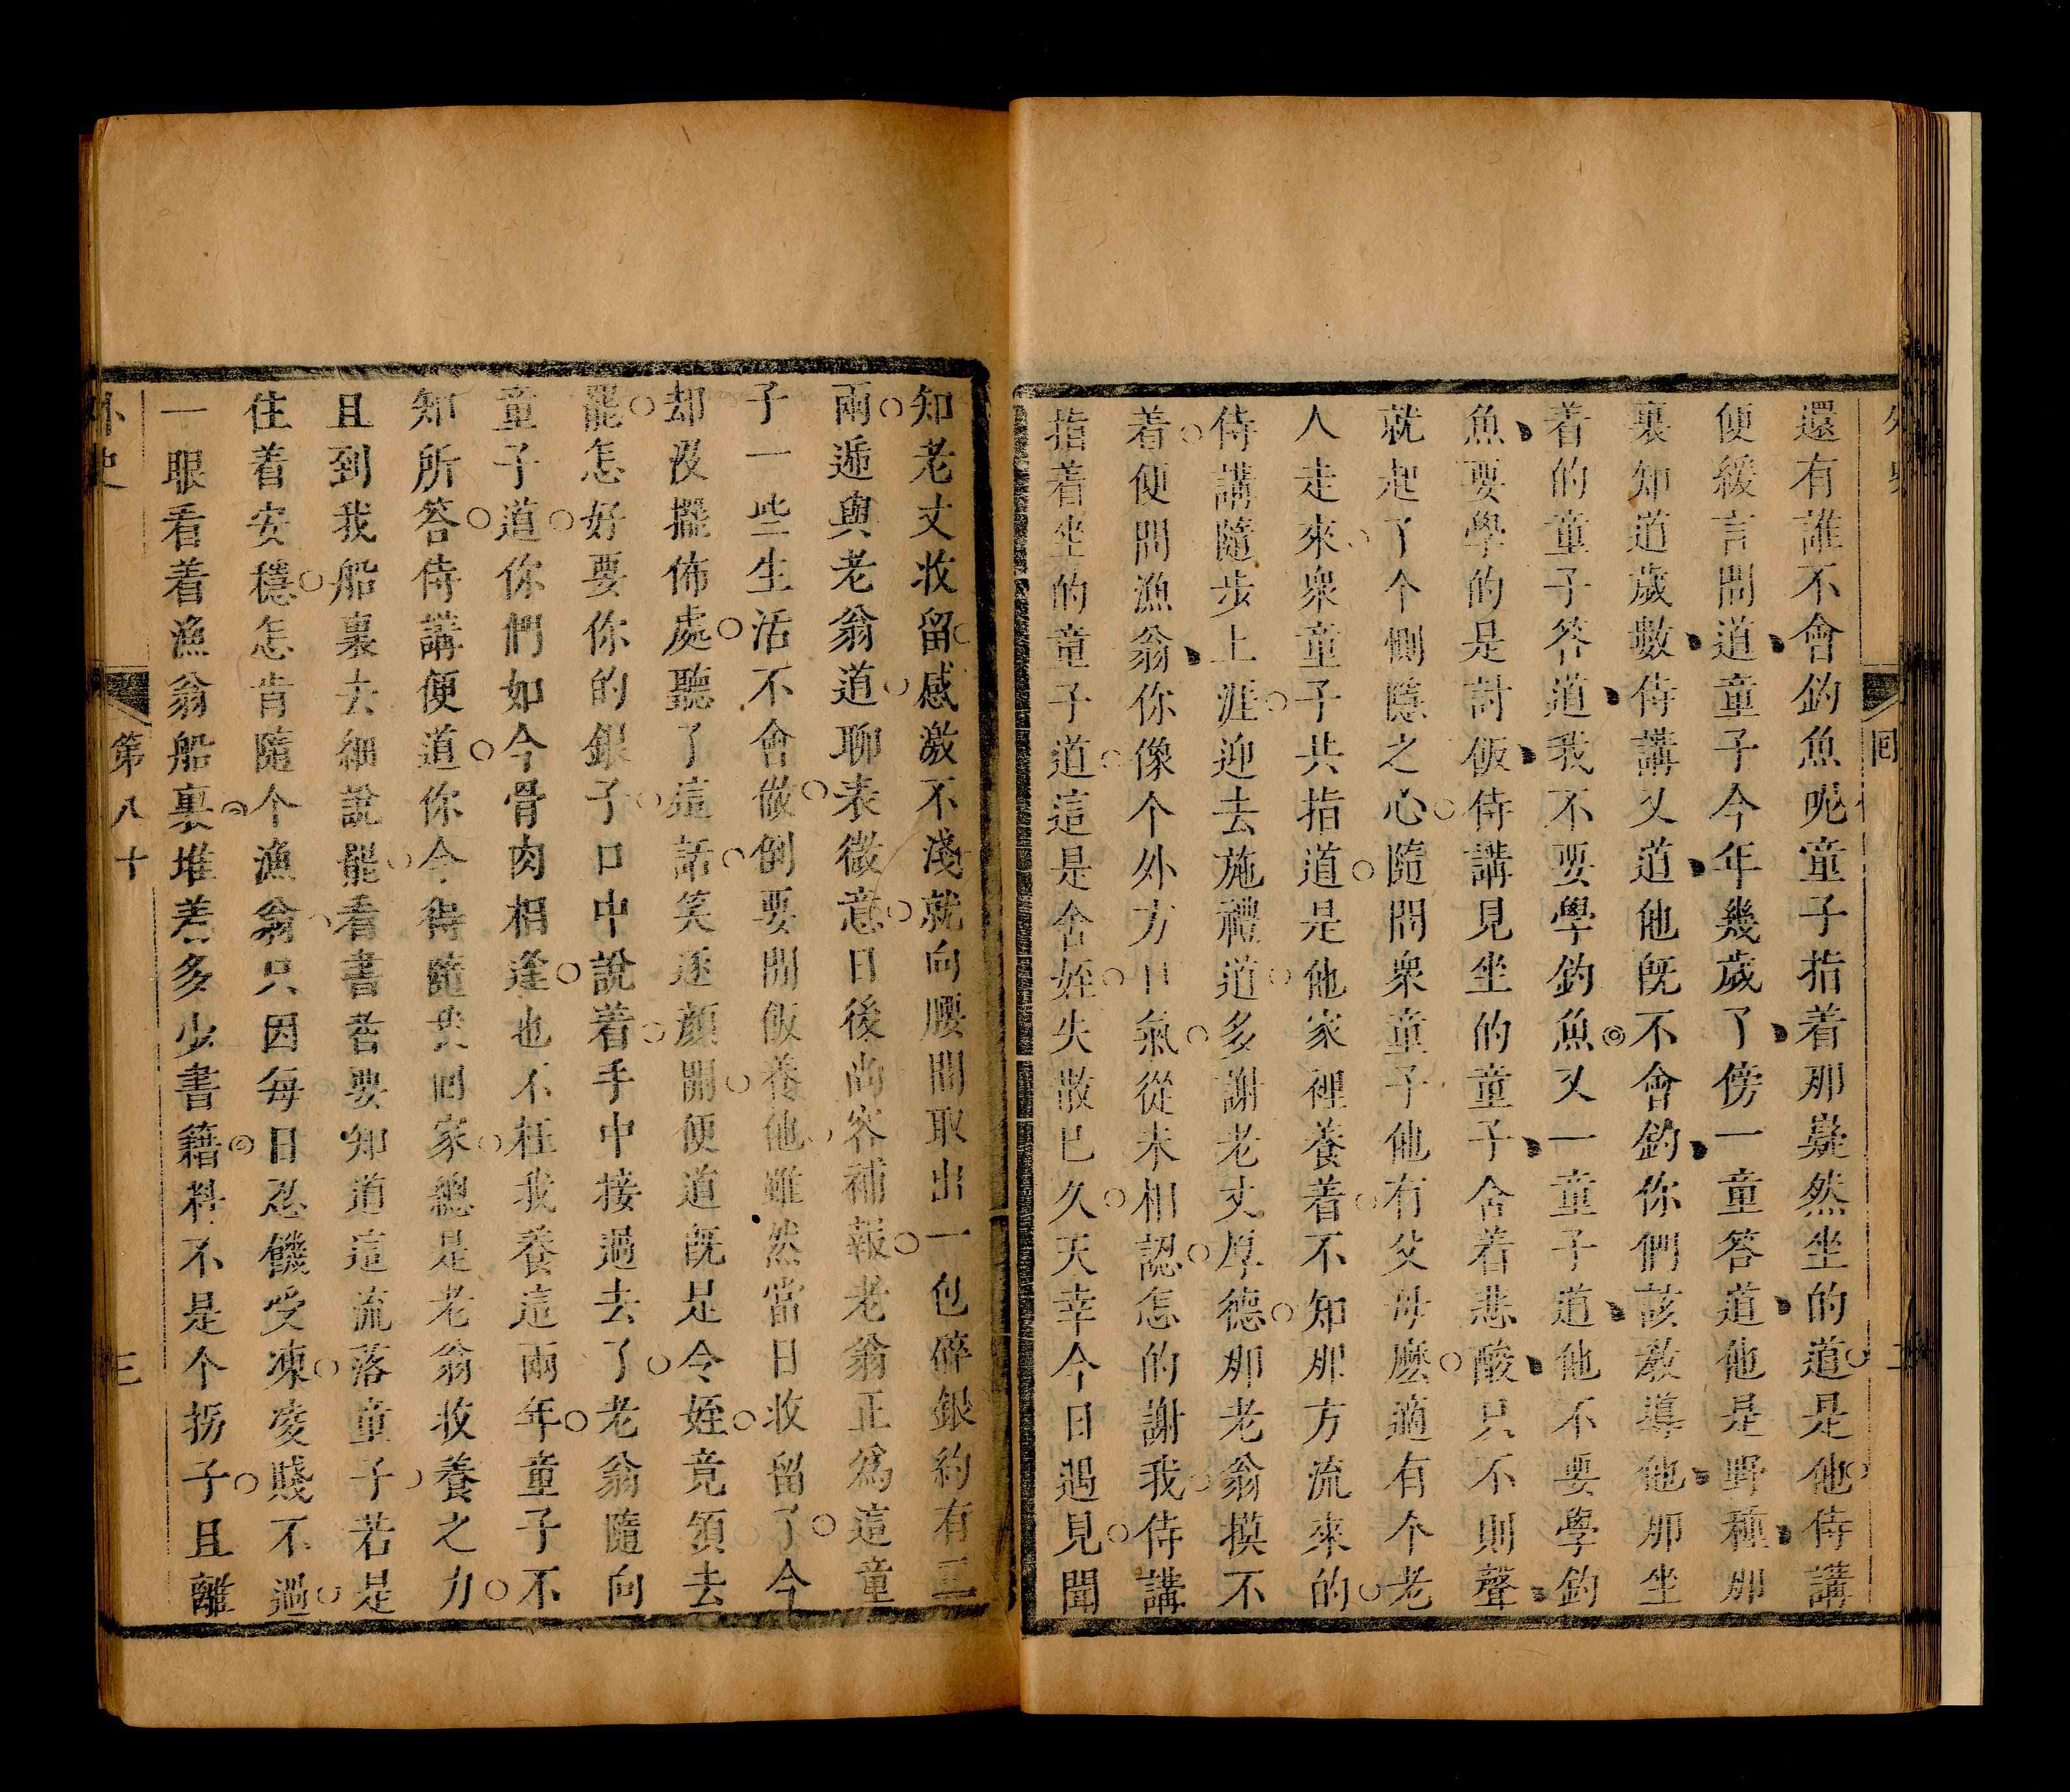 外史
回
二
還有誰不會釣魚呢童子指着那嶷然坐的道是他侍講
便緩言問道童子今年幾歲了傍一童答道他是野種那
裏知道歲數侍講又道他旣不會釣你們該敎導他那坐
着的童子答道我不要學釣魚又一童子道他不要學釣
魚要學的是討飯侍講見坐的童子含着悲酸只不則聲
就起了个惻隱之心隨問衆童子他有父母麽適有个老
人走來衆童子共指道是他家裡養着不知那方流來的
侍講隨步上涯迎去施禮道多謝老丈厚德那老翁摸不
着便問漁翁你像个外方口氣從未相認怎的謝我侍講
指着坐的童子道這是舍姪失散已久天幸今日遇見聞
知老丈收留感激不淺就向腰間取出一包碎銀約有三
兩遞與老翁道聊表微意日後尚容補報老翁正爲這童
子一些生活不會做倒要閒飯養他雖然當日收留了今
却沒擺佈處聽了這話笑逐顏開便道旣是令姪竟領去
罷怎好要你的銀子口中說着手中接過去了老翁隨向
童子道你們如今骨肉相逢也不枉我養這兩年童子不
知所答侍講便道你今得隨我回家總是老翁收養之力
且到我船裏去細說罷看書者要知道這流落童子若是
住着安穩怎肯隨个漁翁只因每日忍饑受凍凌賤不過
一眼看着漁翁船裏堆着多少書籍料不是个拐子且離
外史
第八十
三